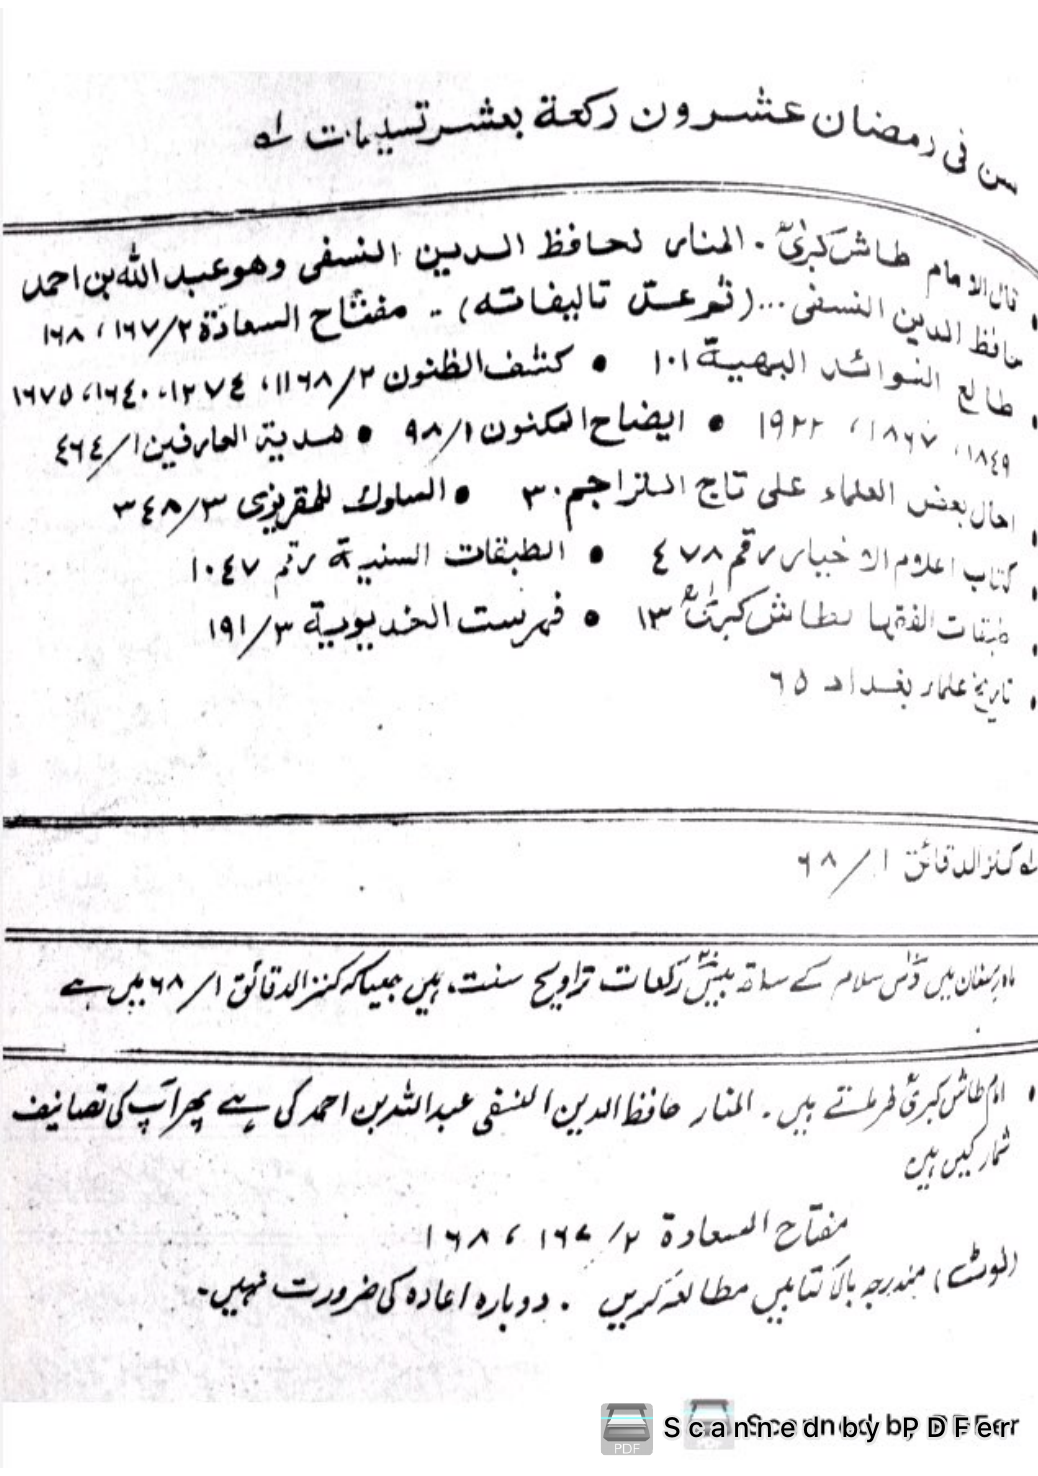 سن فی رمضان عشرون رکعة بعشر تسلیمات لہ
قال الامام طاش کبریٰؒ . المنار لحافظ الدین النسفی وھو عبد اللہ بن احمد
حافظ الدین النسفی ... (ثم عد تالیفاتہ) .. مفتاح السعادة ۲/۱۶۷، ۱۶۸
طالع الفوائد البھیة ۱۰۱ • کشف الظنون ۲/۱۱۶۸، ۱۲۷٤، ۱۶٤۰، ۱۶۷۵
۱۸٤۹، ۱۸۶۷، ۱۹۲۲ • ایضاح المکنون ۱/۹۸ • ھدیة العارفین ۱/٤٦٤
احال بعض العلماء علی تاج التراجم ۳۰ • السلوک للمقریزی ۳/۳٤۸
کتاب اعلام الاخیار رقم ٤۷۸ • الطبقات السنیة رقم ۱۰٤۷
طبقات الفقہا لطاش کبریٰؒ ۱۱۳ • فہرست الخدیویة ۳/۱۹۱
تاریخ علماء بغداد ٦٥
لہ کنز الدقائق ۱/۶۸
ماہ رمضان میں دس سلام کے ساتھ بیس رکعات تراویح سنت ہیں جیسا کہ کنز الدقائق ۱/۶۸ میں ہے
• امام طاش کبریؒ فرماتے ہیں۔ المنار حافظ الدین النسفی عبد اللہ بن احمد کی ہے پھر آپ کی تصانیف
شمار کیں ہیں
مفتاح السعادة ۲/۱۶۷، ۱۶۸
(نوٹ) مندرجہ بالا کتابیں مطالعہ کریں ۔ دوبارہ اعادہ کی ضرورت نہیں۔
PDF Scanned by PDFer